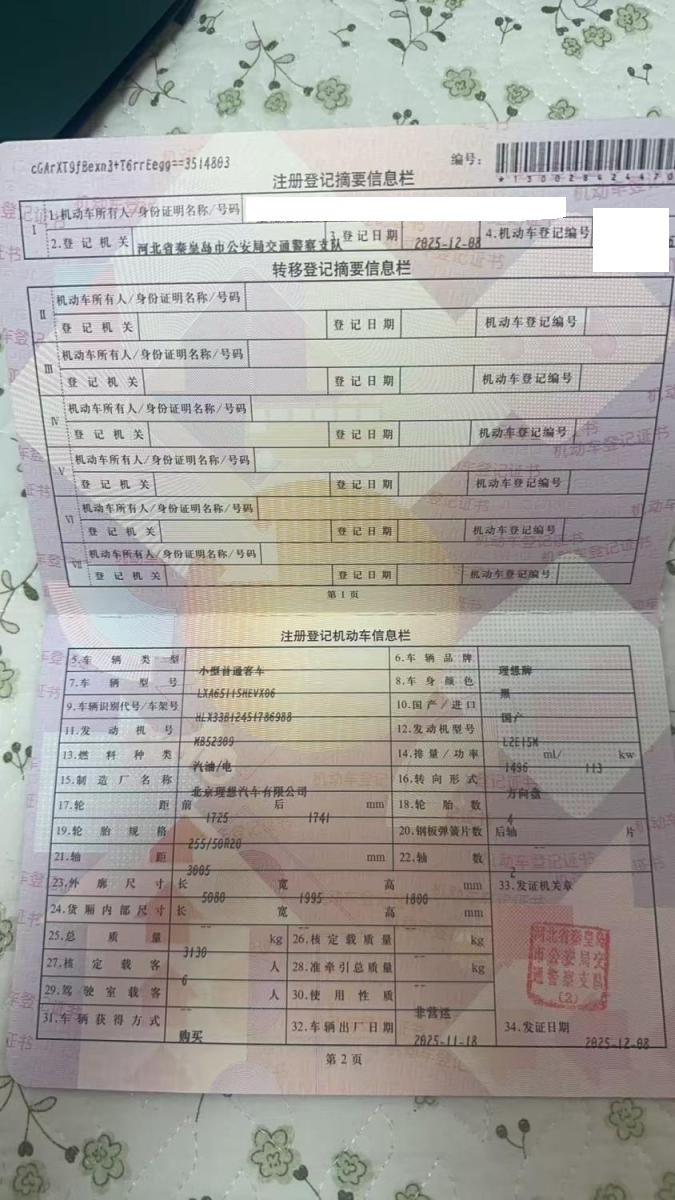 cGArXT9fBexn3+T6rrEegg==3514803
编号：
*130028424470
注册登记摘要信息栏
Ⅰ 1.机动车所有人/身份证明名称/号码
2.登记机关 河北省秦皇岛市公安局交通警察支队 3.登记日期 2025-12-08 4.机动车登记编号
转移登记摘要信息栏
Ⅱ 机动车所有人/身份证明名称/号码
登记机关 登记日期 机动车登记编号
Ⅲ 机动车所有人/身份证明名称/号码
登记机关 登记日期 机动车登记编号
Ⅳ 机动车所有人/身份证明名称/号码
登记机关 登记日期 机动车登记编号
Ⅴ 机动车所有人/身份证明名称/号码
登记机关 登记日期 机动车登记编号
Ⅵ 机动车所有人/身份证明名称/号码
登记机关 登记日期 机动车登记编号
Ⅶ 机动车所有人/身份证明名称/号码
登记机关 登记日期 机动车登记编号
第1页
注册登记机动车信息栏
5.车辆类型 小型普通客车 6.车辆品牌 理想牌
7.车辆型号 LXA6511SHEVX06 8.车身颜色 黑
9.车辆识别代号/车架号 HLX33B12451786988 10.国产/进口 国产
11.发动机号 MB52309 12.发动机型号 L2E15M
13.燃料种类 汽油/电 14.排量/功率 1496 ml/ 113 kw
15.制造厂名称 北京理想汽车有限公司 16.转向形式 方向盘
17.轮距 前 1725 后 1741 mm 18.轮胎数 4
19.轮胎规格 255/50R20 20.钢板弹簧片数 后轴 -- 片
21.轴距 3005 mm 22.轴数 2
23.外廓尺寸 长 5080 宽 1995 高 1800 mm 33.发证机关章
24.货厢内部尺寸 长 -- 宽 -- 高 -- mm
25.总质量 3130 kg 26.核定载质量 -- kg
27.核定载客 6 人 28.准牵引总质量 -- kg
29.驾驶室载客 -- 人 30.使用性质 非营运
31.车辆获得方式 购买 32.车辆出厂日期 2025-11-18 34.发证日期 2025-12-08
河北省秦皇岛
市公安局交
通警察支队
(2)
第2页